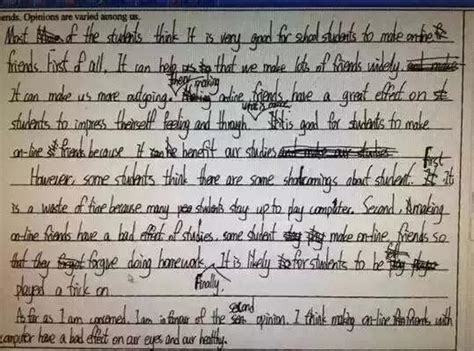 ends. Opinions are varied among us.
Most of the students think it is very good for school students to make on-line
friends. First of all, It can help us that we make lots of friends widely.
It can make us more outgoing. Then making on-line friends have a great effect on
students to impress theirself feeling and through. What's more It is good for students to make
on-line friends because it can benefit our studies
However, some students think there are some shortcomings about student. First It
is a waste of time because many students stay up to play computer. Second, making
on-line friends have a bad effect of studies, some student make on-line friends so
that they forgue doing homework. Finally, It is likely for students to be
played a trick on.
As far as I am concerned, I am in favour of the second opinion. I think making on-line friends with
computer have a bad effect on our eyes and our healthy.